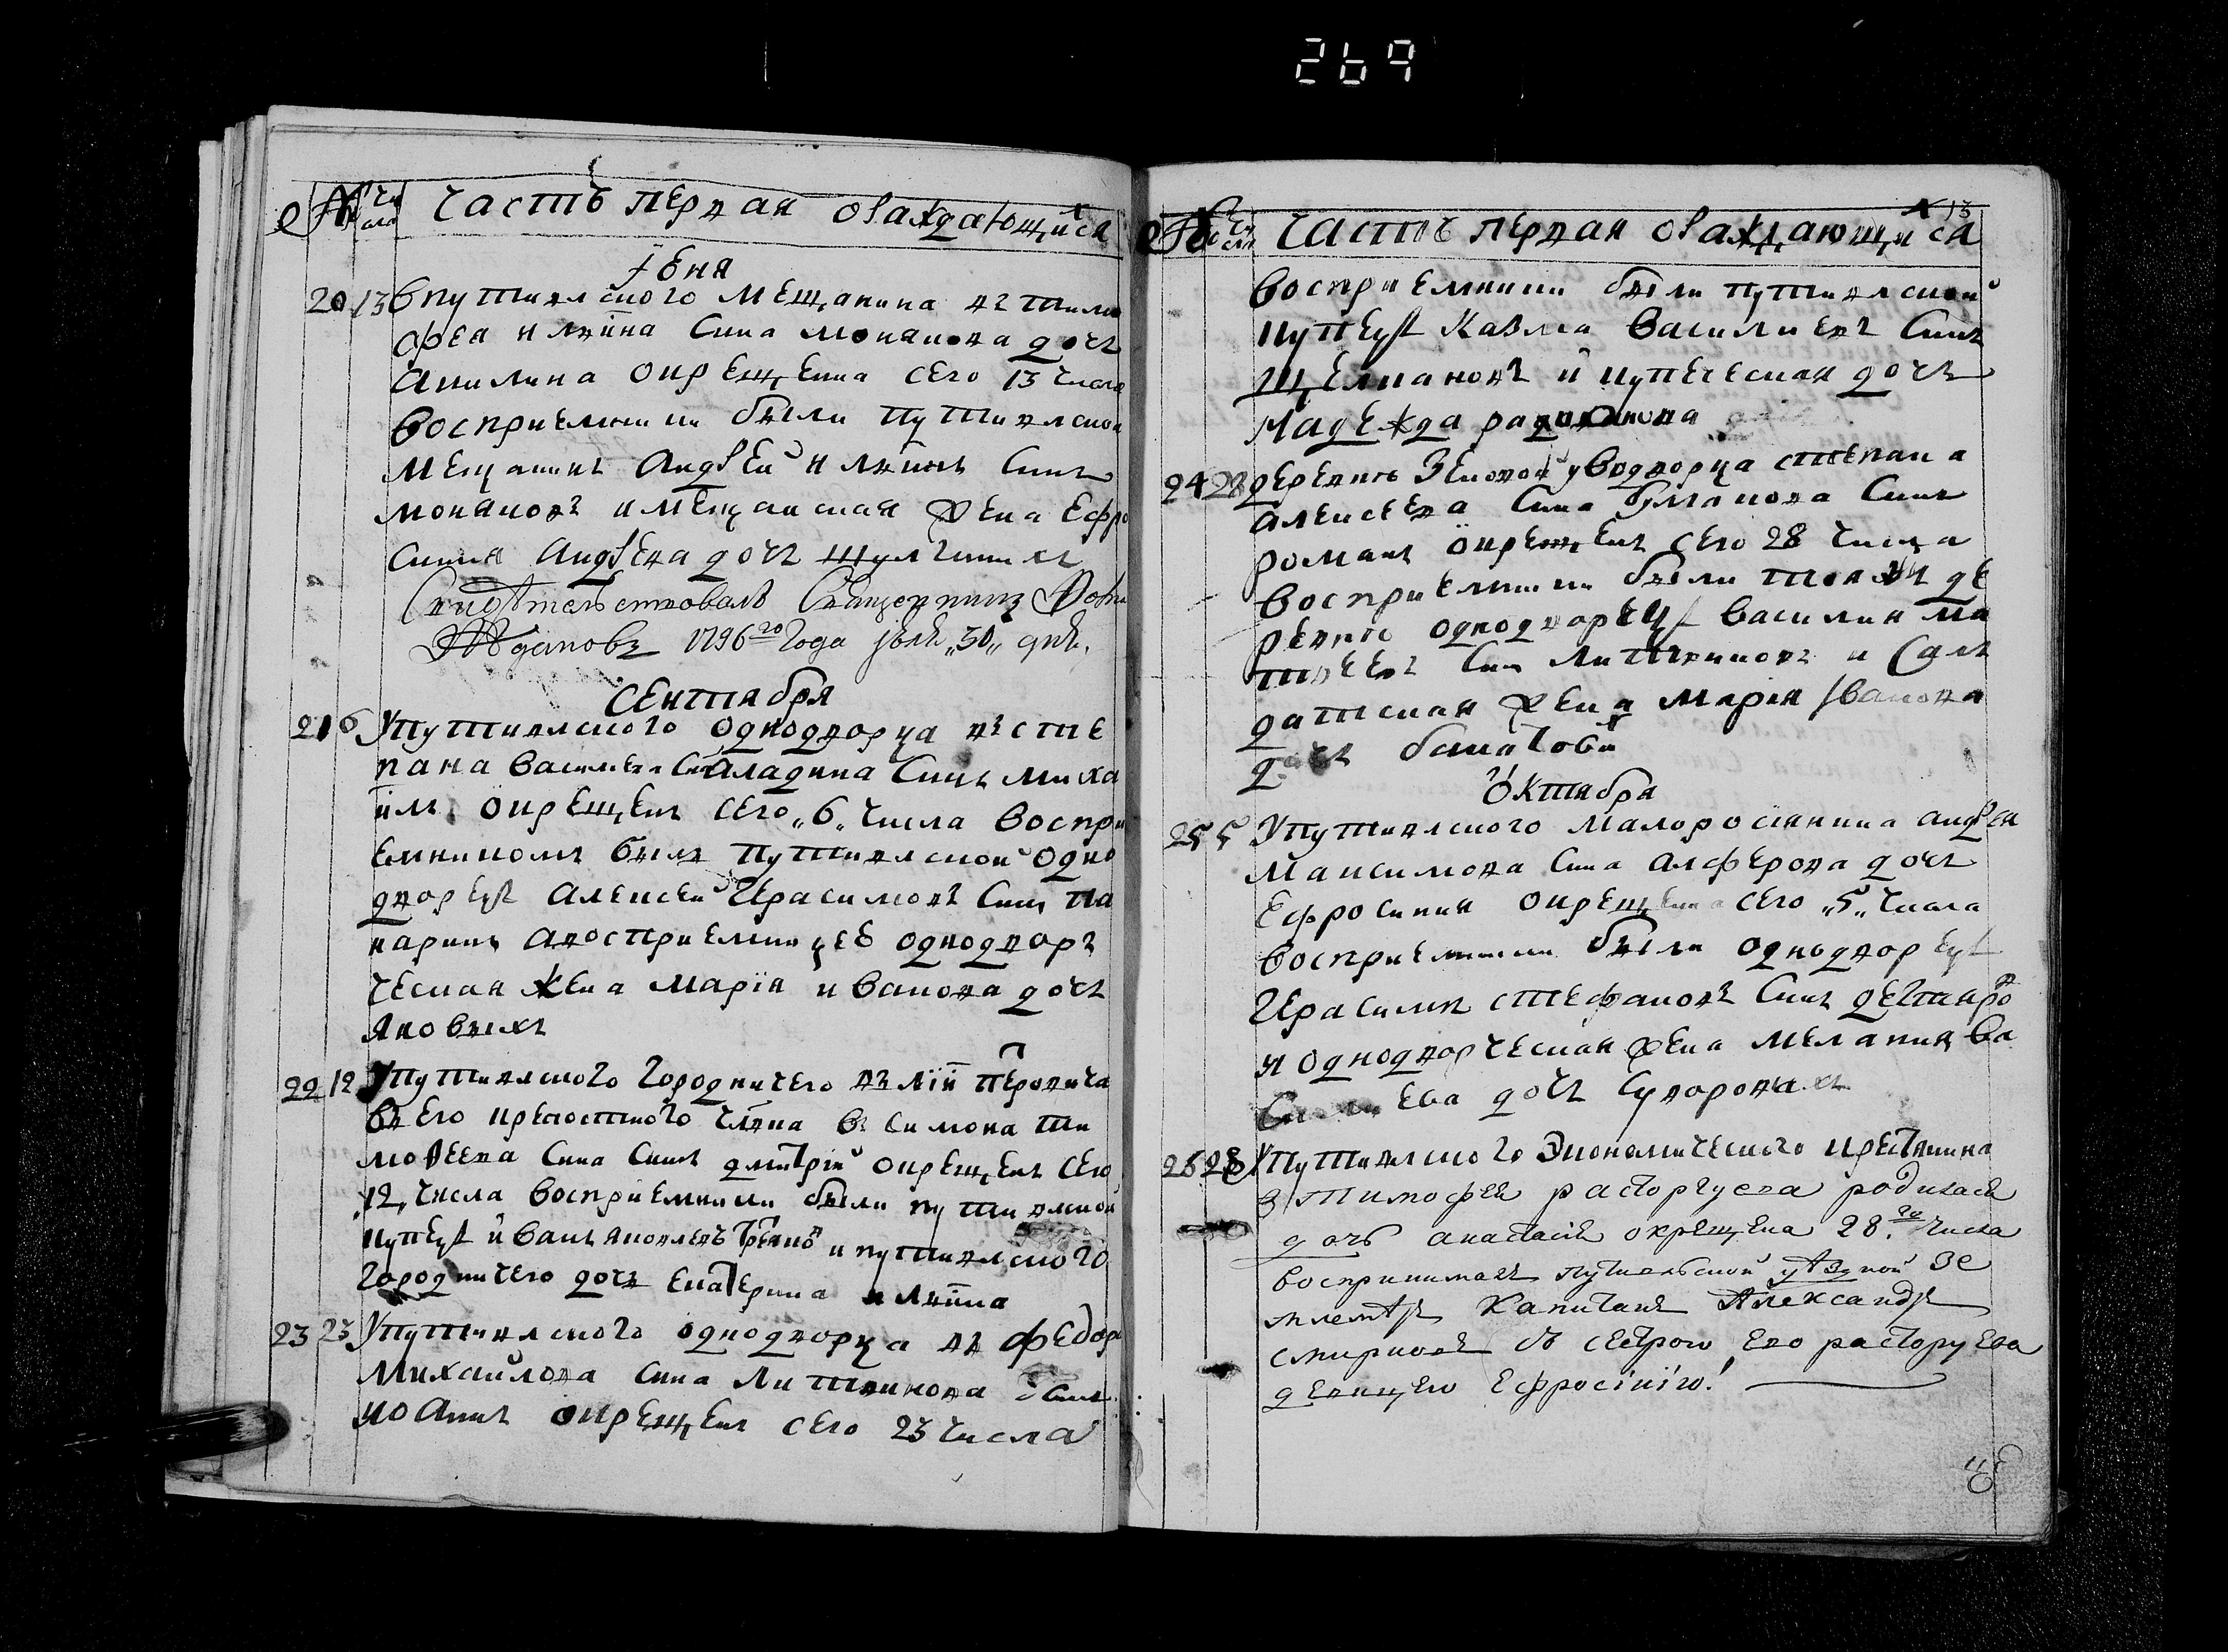 269
№ число Часть первая ораждающийся
Іюня
20 13 Впутивлского мещанина въ тимо
фея илвина сина монакова дочь
Акилина окрещенна сего 13 числа
восприемники были путивлской
мещанинъ Андрей илвинъ синъ
монаковъ и мещанская жена Ефро
синия Андреева дочь
Свидѣтельствовалъ Священникъ
Ждановъ 1796го года июня „30„ дня.
Сентября
21 6 Упутивлского однодворца въ сте
пана василева сина ладина синъ миха
илъ окрещенъ сего „6„ числа воспри
емникомъ былъ путивлской одно
дворецъ алексей Герасимовъ синъ па
каринъ авосприемницею однодвор
ческая жена Мария иванова дочь
яковвыхъ
22 12 Упутивлского городничего
въ его крепостного въ симона ти
мофеева сина синъ дмитрій окрещенъ сего
12, числа восприемники были путивлской
купецъ иванъ яковлевъ и путивлского
городничего дочь екатерина
23 23 Упутивлского однодворца въ федора
Михаилова сина литвинова синъ
иоаннъ окрещенъ сего 23 числа
№ число Часть первая оражающийся 13
восприемники были путивлской
купецъ Казма василиевъ синъ
Щелкановъ и купеческая дочь
Надежда радионова
24 28 деревни Зеновой уводворца степана
алексеева сина синъ
романъ окрещенъ сего 28 числа
восприемники были тояжъ де
ревни однодворецъ василий ма
твеевъ синъ литвиновъ и сал
датская жена мария Иванова
дочь
Октября
25 5 Упутивлского малоросиянина андрея
максимова сина алферова дочь
Ефросиния окрещенна сего „5„ числа
восприемники были однодворецъ
Герасимъ стефановъ синъ
и однодворческая жена мелания ва
силиева дочь
26 28 Упутивлского экономического крестянина
тимофея расторгуева родилася
дочь анастасия окрещена 28.го числа
воспринималъ путивльской уѣздной зе
млемѣръ капитанъ Александръ
смирновъ съ сестрою его расторуева
девицею Ефросініію!